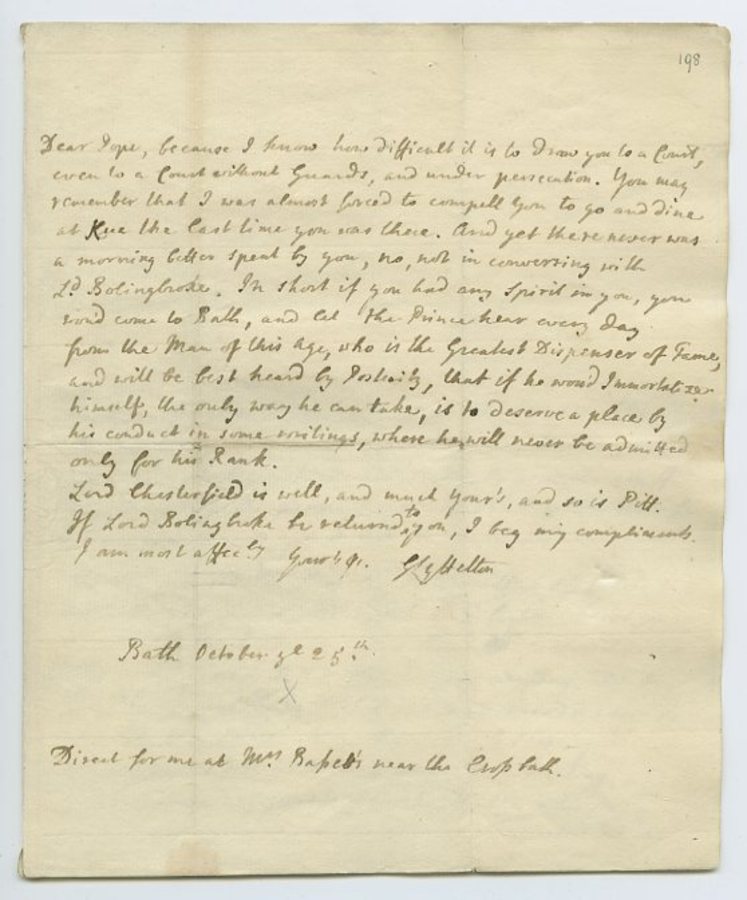 198
Dear Pope, because I know how difficult it is to Draw you to a Court,
even to a Court without Guards, and under persecution. You may
remember that I was almost forced to compell you to go and dine
at Kue the last time you was there. And yet there never was
a morning better spent by you, no, not in conversing with
Ld Bolingbroke. In short if you had any Spirit in you, you
wou'd come to Bath, and let the Prince hear every day
from the Man of this Age, who is the Greatest Dispenser of Fame,
and will be best heard by Posterity, that if he woud Immortalize
himself, the only way he can take, is to deserve a place by
his conduct in some writings, where he will never be admitted
only for his Rank.
Lord Chesterfield is well, and much Your's, and so is Pitt.
If Lord Bolingbroke be returnd to you, I beg my compliments.
I am most affecly Your's &c. G Lyttelton
Bath October ye 25th.
X
Direct for me at Mrs near the Cross bath.